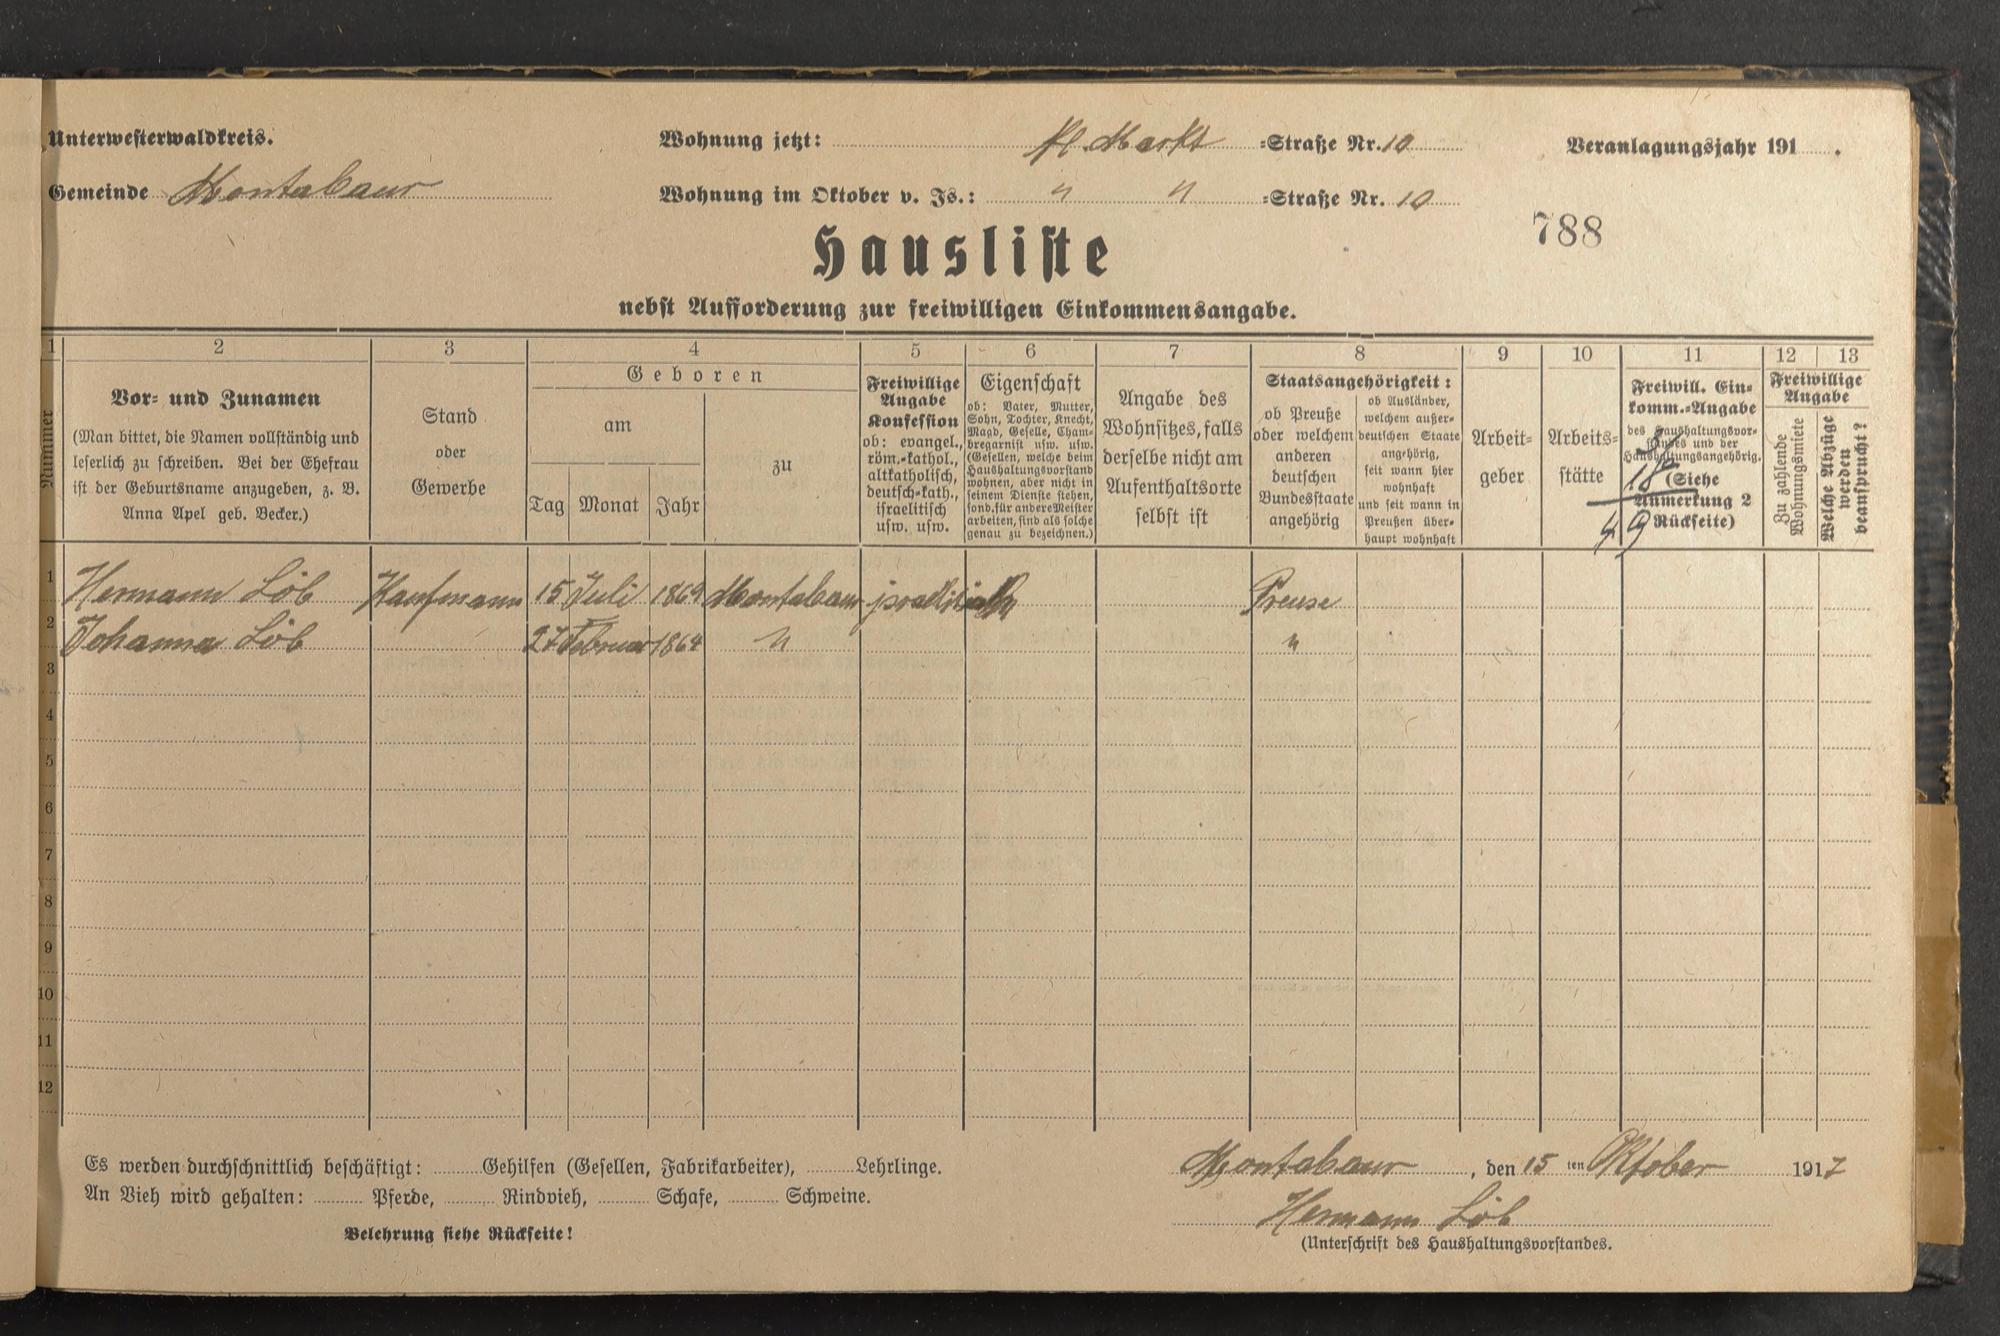 Unterwesterwaldkreis.
Gemeinde Montabaur
Wohnung jetzt: kl. Markt =Straße Nr. 10
Wohnung im Oktober v. Js.: " " =Straße Nr. 10
Veranlagungsjahr 191 .
788
Hausliste
nebst Aufforderung zur freiwilligen Einkommensangabe.
1 2 3 4 5 6 7 8 9 10 11 12 13
Nummer
Vor- und Zunamen
(Man bittet, die Namen vollständig und
leserlich zu schreiben. Bei der Ehefrau
ist der Geburtsname anzugeben, z. B.
Anna Apel geb. Becker.)
Stand
oder
Gewerbe
Geboren
am
Tag Monat Jahr
zu
Freiwillige
Angabe
Konfession
ob: evangel.,
röm.-kathol.,
altkatholisch,
deutsch-kath.,
israelitisch
usw. usw.
Eigenschaft
ob: Vater, Mutter,
Sohn, Tochter, Knecht,
Magd, Geselle, Cham-
bregarnist usw. usw.
(Gesellen, welche beim
Haushaltungsvorstand
wohnen, aber nicht in
seinem Dienste stehen,
sond. für andere Meister
arbeiten, sind als solche
genau zu bezeichnen.)
Angabe des
Wohnsitzes, falls
derselbe nicht am
Aufenthaltsorte
selbst ist
Staatsangehörigkeit:
ob Preuße
oder welchem
anderen
deutschen
Bundesstaate
angehörig
ob Ausländer,
welchem außer-
deutschen Staate
angehörig,
seit wann hier
wohnhaft
und seit wann in
Preußen über-
haupt wohnhaft
Arbeit-
geber
Arbeits-
stätte
Freiwill. Ein-
komm.-Angabe
des Haushaltungsvor-
standes und der
Haushaltungsangehörig.
(Siehe
Anmerkung 2
Rückseite)
18
49
Freiwillige
Angabe
Zu zahlende
Wohnungsmiete
Welche Abzüge
werden
beansprucht?
1 Hermann Löb Kaufmann 15 Juli 1869 Montabaur israelitisch Preuse
2 Johanna Löb 27 Februar 1864 " "
3
4
5
6
7
8
9
10
11
12
Es werden durchschnittlich beschäftigt: Gehilfen (Gesellen, Fabrikarbeiter), Lehrlinge.
An Vieh wird gehalten: Pferde, Rindvieh, Schafe, Schweine.
Belehrung siehe Rückseite!
Montabaur, den 15 ten Oktober 1917
Hermann Löb
(Unterschrift des Haushaltungsvorstandes.